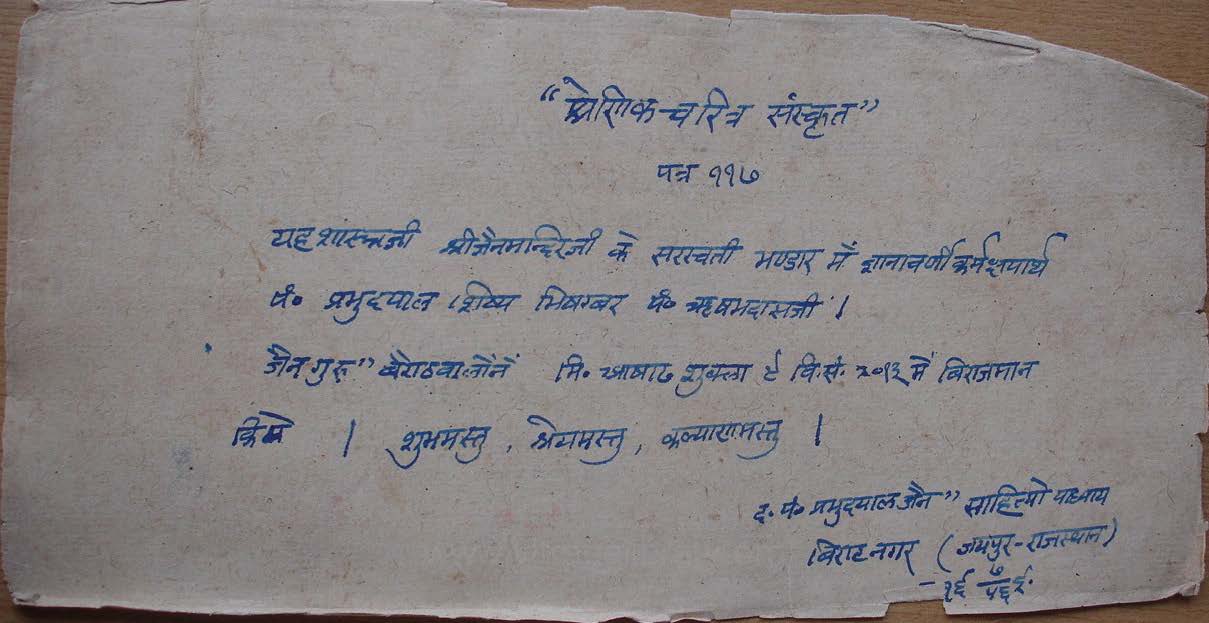 “श्रेणिक-चरित्र संस्कृत”
पत्र ११७
यह शास्त्रजी श्रीजैनमन्दिरजी के सरस्वती भण्डार में ज्ञानावर्णी कर्मक्षयार्थ
पं० प्रभुदयाल शिष्य भिषग्वर पं० ऋषभदासजी ।
जैन गुरु” बैराठवालोंनें मि० आषाढ शुक्ला ८ वि.सं. २०१३ में विराजमान
किये । शुभमस्तु, श्रेयमस्तु, कल्याणमस्तु ।
द. पं० प्रभुदयाल जैन” साहित्योपाध्याय
विराटनगर (जयपुर-राजस्थान)